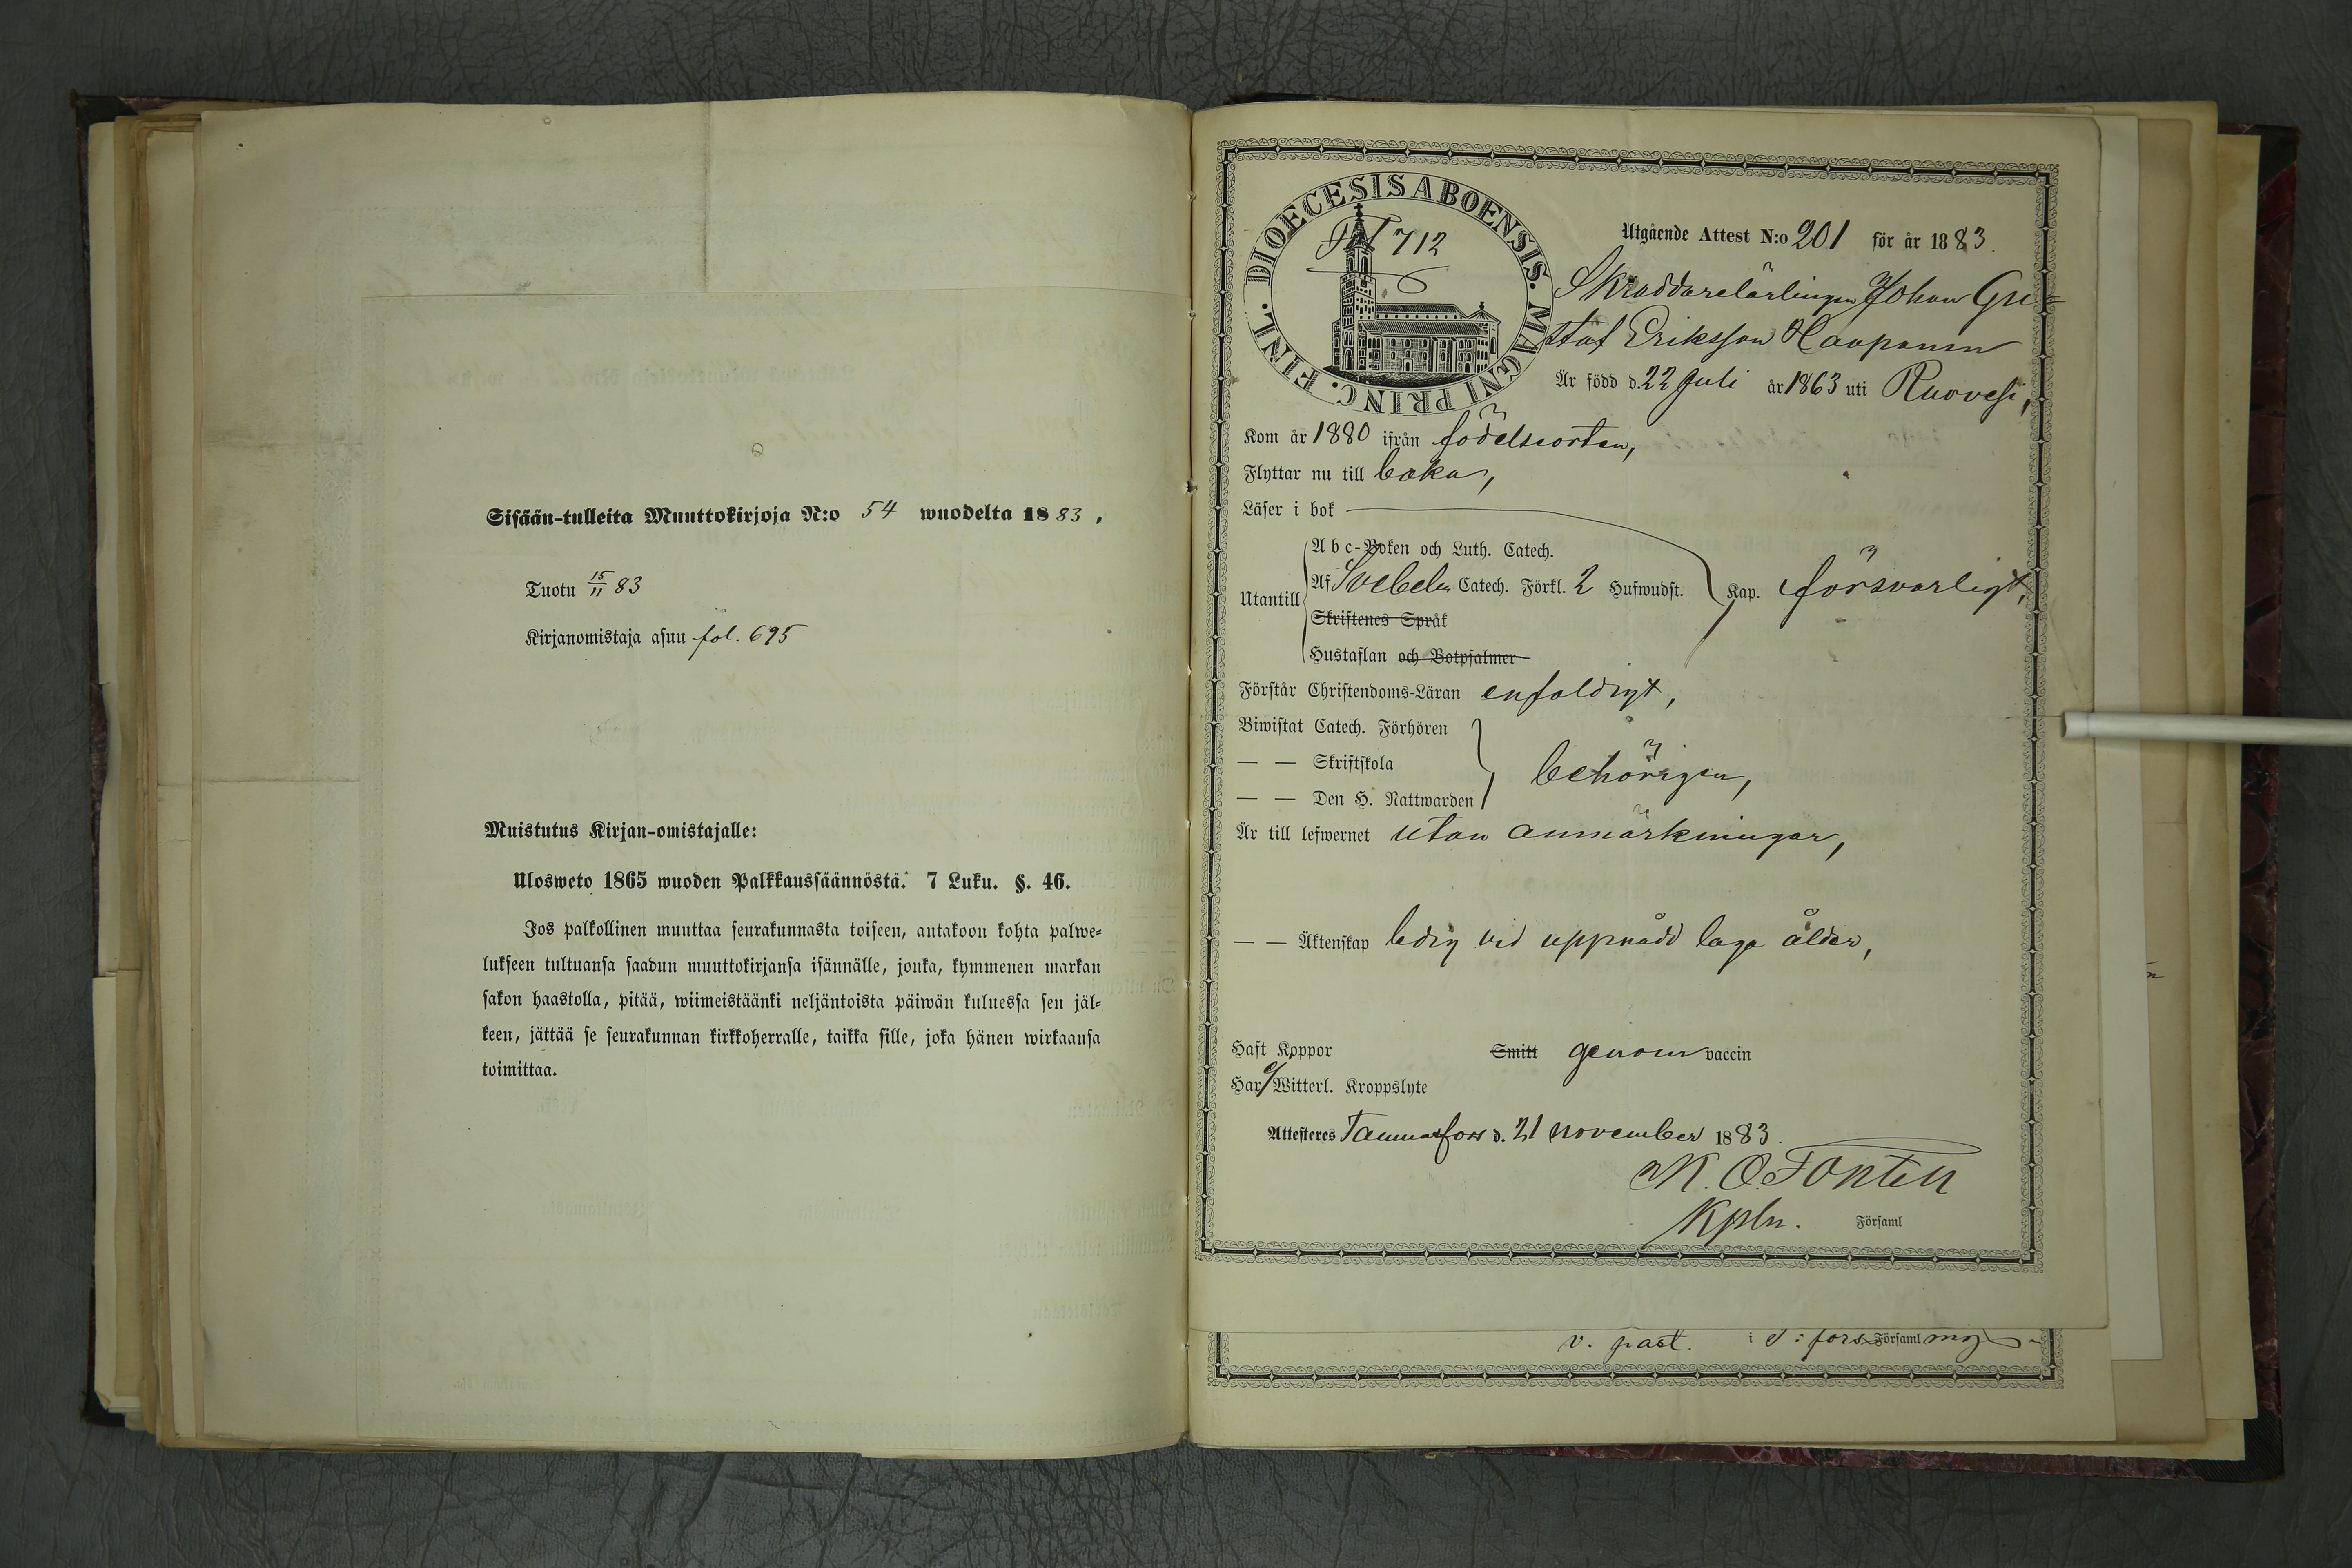 Sisään-tulleita Muuttokirjoja N:o 54 wuodelta 1883.
Tuotu 15/11 83
Kirjanomistaja asuu fol. 695
Muistutus Kirjan-omistajalle:
Ulosweto 1865 wuoden Palkkaussäännöstä. 7 Luku. §. 46.
Jos palkollinen muuttaa seurakunnasta toiseen, antakoon kohta palwe-
lukseen tultuansa saadun muuttokirjansa isännälle, jonka, kymmenen markan
sakon haastolla, pitää, wiimeistäänki neljäntoista päiwän kuluessa sen jäl-
keen, jättää se seurakunnan kirkkoherralle, taikka sille, joka hänen wirkaansa
toimittaa.
DIOECESIS ABOENSIS. MAGNI PRINC. FINL.
712
Utgående Attest N:o 201 för år 1883.
Skräddarelärlingen Johan Gu=
staf Eriksson Haapanen
Är född d. 22 Juli år 1863 uti Ruovesi,
Kom år 1880 ifrån födelseorten,
Flyttar nu till
Läser i bok
Abc-Boken och Luth. Catech.
Utantill Af Svebelii Catech. Förkl. 2 Hufwudst. Kap. försvarligt,
Skriftenes Språk
Hustaflan och Botpsalmer
Förstår Christendoms-Läran enfaldigt,
Biwistat Catech. Förhören
— — Skriftskola behörigen,
— — Den H. Nattwarden
Är till lefwernet utan anmärkningar,
— — Äktenskap ledig vid uppnådd laga ålder,
Haft Koppor Smitt genom vaccin
Har ej Witterl. Kroppslyte
Attesteres Tammerfors d. 21 November 1883.
K. O. Fontell
Kpln. Församl
v. past. i T:fors Församl